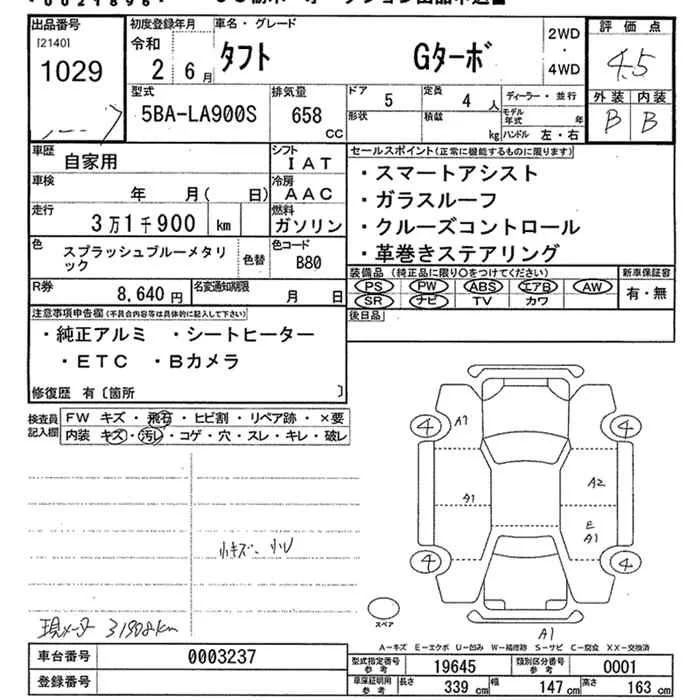 *0021896*
出品番号 初度登録年月 車名・グレード 評価点
[2140] 1029
令和 2 6月
タフト Gターボ
2WD
・
4WD
4.5
型式 5BA-LA900S
排気量 658 CC
ドア 5
定員 4 人
ディーラー・並行
形状 積載 kg
モデル年式 年
ハンドル 左・右
外装 内装
B B
車歴 自家用
シフト IAT
車検 年 月( 日)
冷房 AAC
走行 3万1千900 km
燃料 ガソリン
色 スプラッシュブルーメタリック
色替
色コード B80
R券 8,640円
名変通知期限 月 日
セールスポイント(正常に機能するものに限ります)
・スマートアシスト
・ガラスルーフ
・クルーズコントロール
・革巻きステアリング
装備品(純正品に限り○をつけてください) 新車保証書
PS PW ABS エアB AW
SR ナビ TV カワ
有・無
後日品
注意事項申告欄(不具合内容等は具体的に記入して下さい)
・純正アルミ ・シートヒーター
・ETC ・Bカメラ
修復歴 有〔箇所 〕
検査員記入欄
FW キズ・飛石・ヒビ割・リペア跡・×要
内装 キズ・汚レ・コゲ・穴・スレ・キレ・破レ
小キズ、小ソ
現メータ 31908km
4 A1 4
A1 A2
E
A1
4 4
スペア
A1
A-キズ E-エクボ U-凹み W-補修跡 S-サビ C-腐食 XX-交換済
車台番号 0003237
登録番号
型式指定番号参考 19645
類別区分番号参考 0001
車庫証明用参考 長さ 339 cm 幅 147 cm 高さ 163 cm